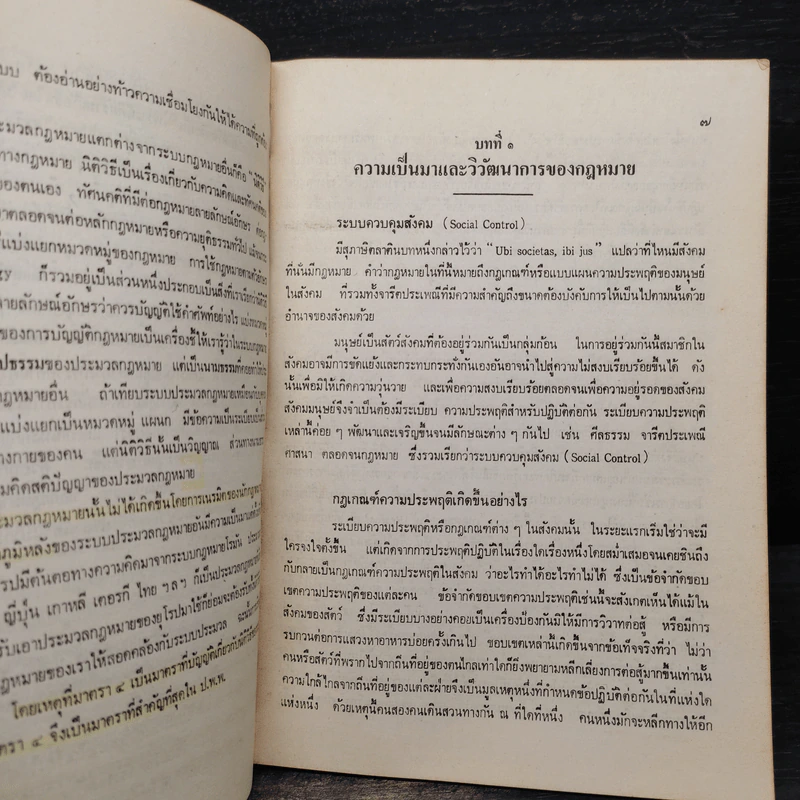 ต้องอ่านอย่างท้าวความเชื่อมโยงกันให้ได้ความที่ถูกต้อง
ะมวลกฎหมายแตกต่างจากระบบกฎหมายอื่นก็คือ
ทางกฎหมาย นิติวิธีเป็นเรื่องเกี่ยวกับความคิดและทัศนคติของ
ของตนเอง ทัศนคติที่มีต่อกฎหมายลายลักษณ์อักษร
าตลอดจนต่อหลักกฎหมายหรือความยุติธรรมทั่วไป
แบ่งแยกหมวดหมู่ของกฎหมาย การใช้กฎหมาย
gy ก็รวมอยู่เป็นส่วนหนึ่งประกอบเป็นสิ่งที่เราเรียกว่านิติวิธี
ายลักษณ์อักษรว่าควรบัญญัติใช้คำศัพท์อย่างไร
ของการบัญญัติกฎหมายเป็นเครื่องชี้ให้เรารู้ว่าในระบบกฎหมาย
ปธรรมของประมวลกฎหมาย แต่เป็นนามธรรมที่
ฎหมายอื่น ถ้าเทียบระบบประมวลกฎหมายเหมือนกับ
แบ่งแยกเป็นหมวดหมู่ แผนก มีข้อความเป็นระเบียบ
างกายของคน แต่นิติวิธีนั้นเป็นวิญญาณ
มคิดสติปัญญาของประมวลกฎหมาย
ะมวลกฎหมายนั้นไม่ได้เกิดขึ้นโดยการเนรมิตของนักกฎหมาย
ภูมิหลังของระบบประมวลกฎหมายอันมีความเป็นมา
รปมีต้นตอทางความคิดมาจากระบบกฎหมายโรมัน
ญี่ปุ่น เกาหลี เตอรกี ไทย ฯลฯ ก็เป็นประมวลกฎหมาย
รับเอาประมวลกฎหมายของยุโรปมาใช้ก็ย่อมจะต้อง
กฎหมายของเราให้สอดคล้องกับระบบประมวล
โดยเหตุที่มาตรา ๔ เป็นมาตราที่บัญญัติเกี่ยวกับ
มาตรา ๔ จึงเป็นมาตราที่สำคัญที่สุดใน ป.พ.พ.
๗
บทที่ ๑
ความเป็นมาและวิวัฒนาการของกฎหมาย
ระบบควบคุมสังคม (Social Control)
มีสุภาษิตลาตินบทหนึ่งกล่าวไว้ว่า "Ubi societas, ibi jus" แปลว่าที่ไหนมีสังคม
ที่นั่นมีกฎหมาย คำว่ากฎหมายในที่นี้หมายถึงกฎเกณฑ์หรือแบบแผนความประพฤติของมนุษย์
ในสังคม ที่รวมทั้งจารีตประเพณีที่มีความสำคัญถึงขนาดต้องบังคับการให้เป็นไปตามนั้นด้วย
อำนาจของสังคมด้วย
มนุษย์เป็นสัตว์สังคมที่ต้องอยู่ร่วมกันเป็นกลุ่มก้อน ในการอยู่ร่วมกันนี้สมาชิกใน
สังคมอาจมีการขัดแย้งและกระทบกระทั่งกันเองอันอาจนำไปสู่ความไม่สงบเรียบร้อยขึ้นได้ ดัง
นั้นเพื่อมิให้เกิดความวุ่นวาย และเพื่อความสงบเรียบร้อยตลอดจนเพื่อความอยู่รอดของสังคม
สังคมมนุษย์จึงจำเป็นต้องมีระเบียบ ความประพฤติสำหรับปฏิบัติต่อกัน ระเบียบความประพฤติ
เหล่านี้ค่อย ๆ พัฒนาและเจริญขึ้นจนมีลักษณะต่าง ๆ กันไป เช่น ศีลธรรม จารีตประเพณี
ศาสนา ตลอดจนกฎหมาย ซึ่งรวมเรียกว่าระบบควบคุมสังคม (Social Control)
กฎเกณฑ์ความประพฤติเกิดขึ้นอย่างไร
ระเบียบความประพฤติหรือกฎเกณฑ์ต่าง ๆ ในสังคมนั้น ในระยะแรกเริ่มใช่ว่าจะมี
ใครจงใจตั้งขึ้น แต่เกิดจากการประพฤติปฏิบัติในเรื่องใดเรื่องหนึ่งโดยสม่ำเสมอจนเคยชินถึง
กับกลายเป็นกฎเกณฑ์ความประพฤติในสังคม ว่าอะไรทำได้อะไรทำไม่ได้ ซึ่งเป็นข้อจำกัดขอบ
เขตความประพฤติของแต่ละคน ข้อจำกัดขอบเขตความประพฤติเช่นนี้จะสังเกตเห็นได้แม้ใน
สังคมของสัตว์ ซึ่งมีระเบียบบางอย่างคอยเป็นเครื่องป้องกันมิให้มีการวิวาทต่อสู้ หรือมีการ
รบกวนต่อการแสวงหาอาหารบ่อยครั้งเกินไป ขอบเขตเหล่านี้เกิดขึ้นจากข้อเท็จจริงที่ว่า ไม่ว่า
คนหรือสัตว์ที่พรากไปจากถิ่นที่อยู่ของตนไกลเท่าใดก็ยิ่งพยายามหลีกเลี่ยงการต่อสู้มากขึ้นเท่านั้น
ความใกล้ไกลจากถิ่นที่อยู่ของแต่ละฝ่ายจึงเป็นมูลเหตุหนึ่งที่กำหนดข้อปฏิบัติต่อกันในที่แห่งใด
แห่งหนึ่ง ด้วยเหตุนี้คนสองคนเดินสวนทางกัน ณ ที่ใดที่หนึ่ง คนหนึ่งมักจะหลีกทางให้อีก